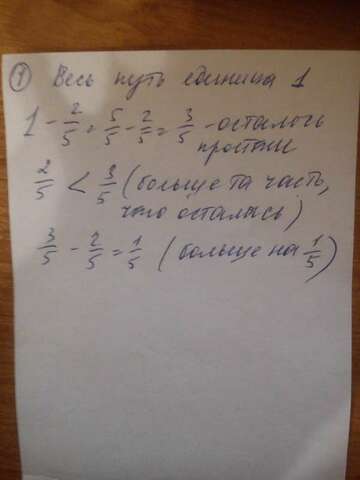 ① Весь путь единица 1
1 - 2/5 = 5/5 - 2/5 = 3/5 - осталось
2/5 < 3/5 (больше та часть,
что осталась)
3/5 - 2/5 = 1/5 (больше на 1/5)